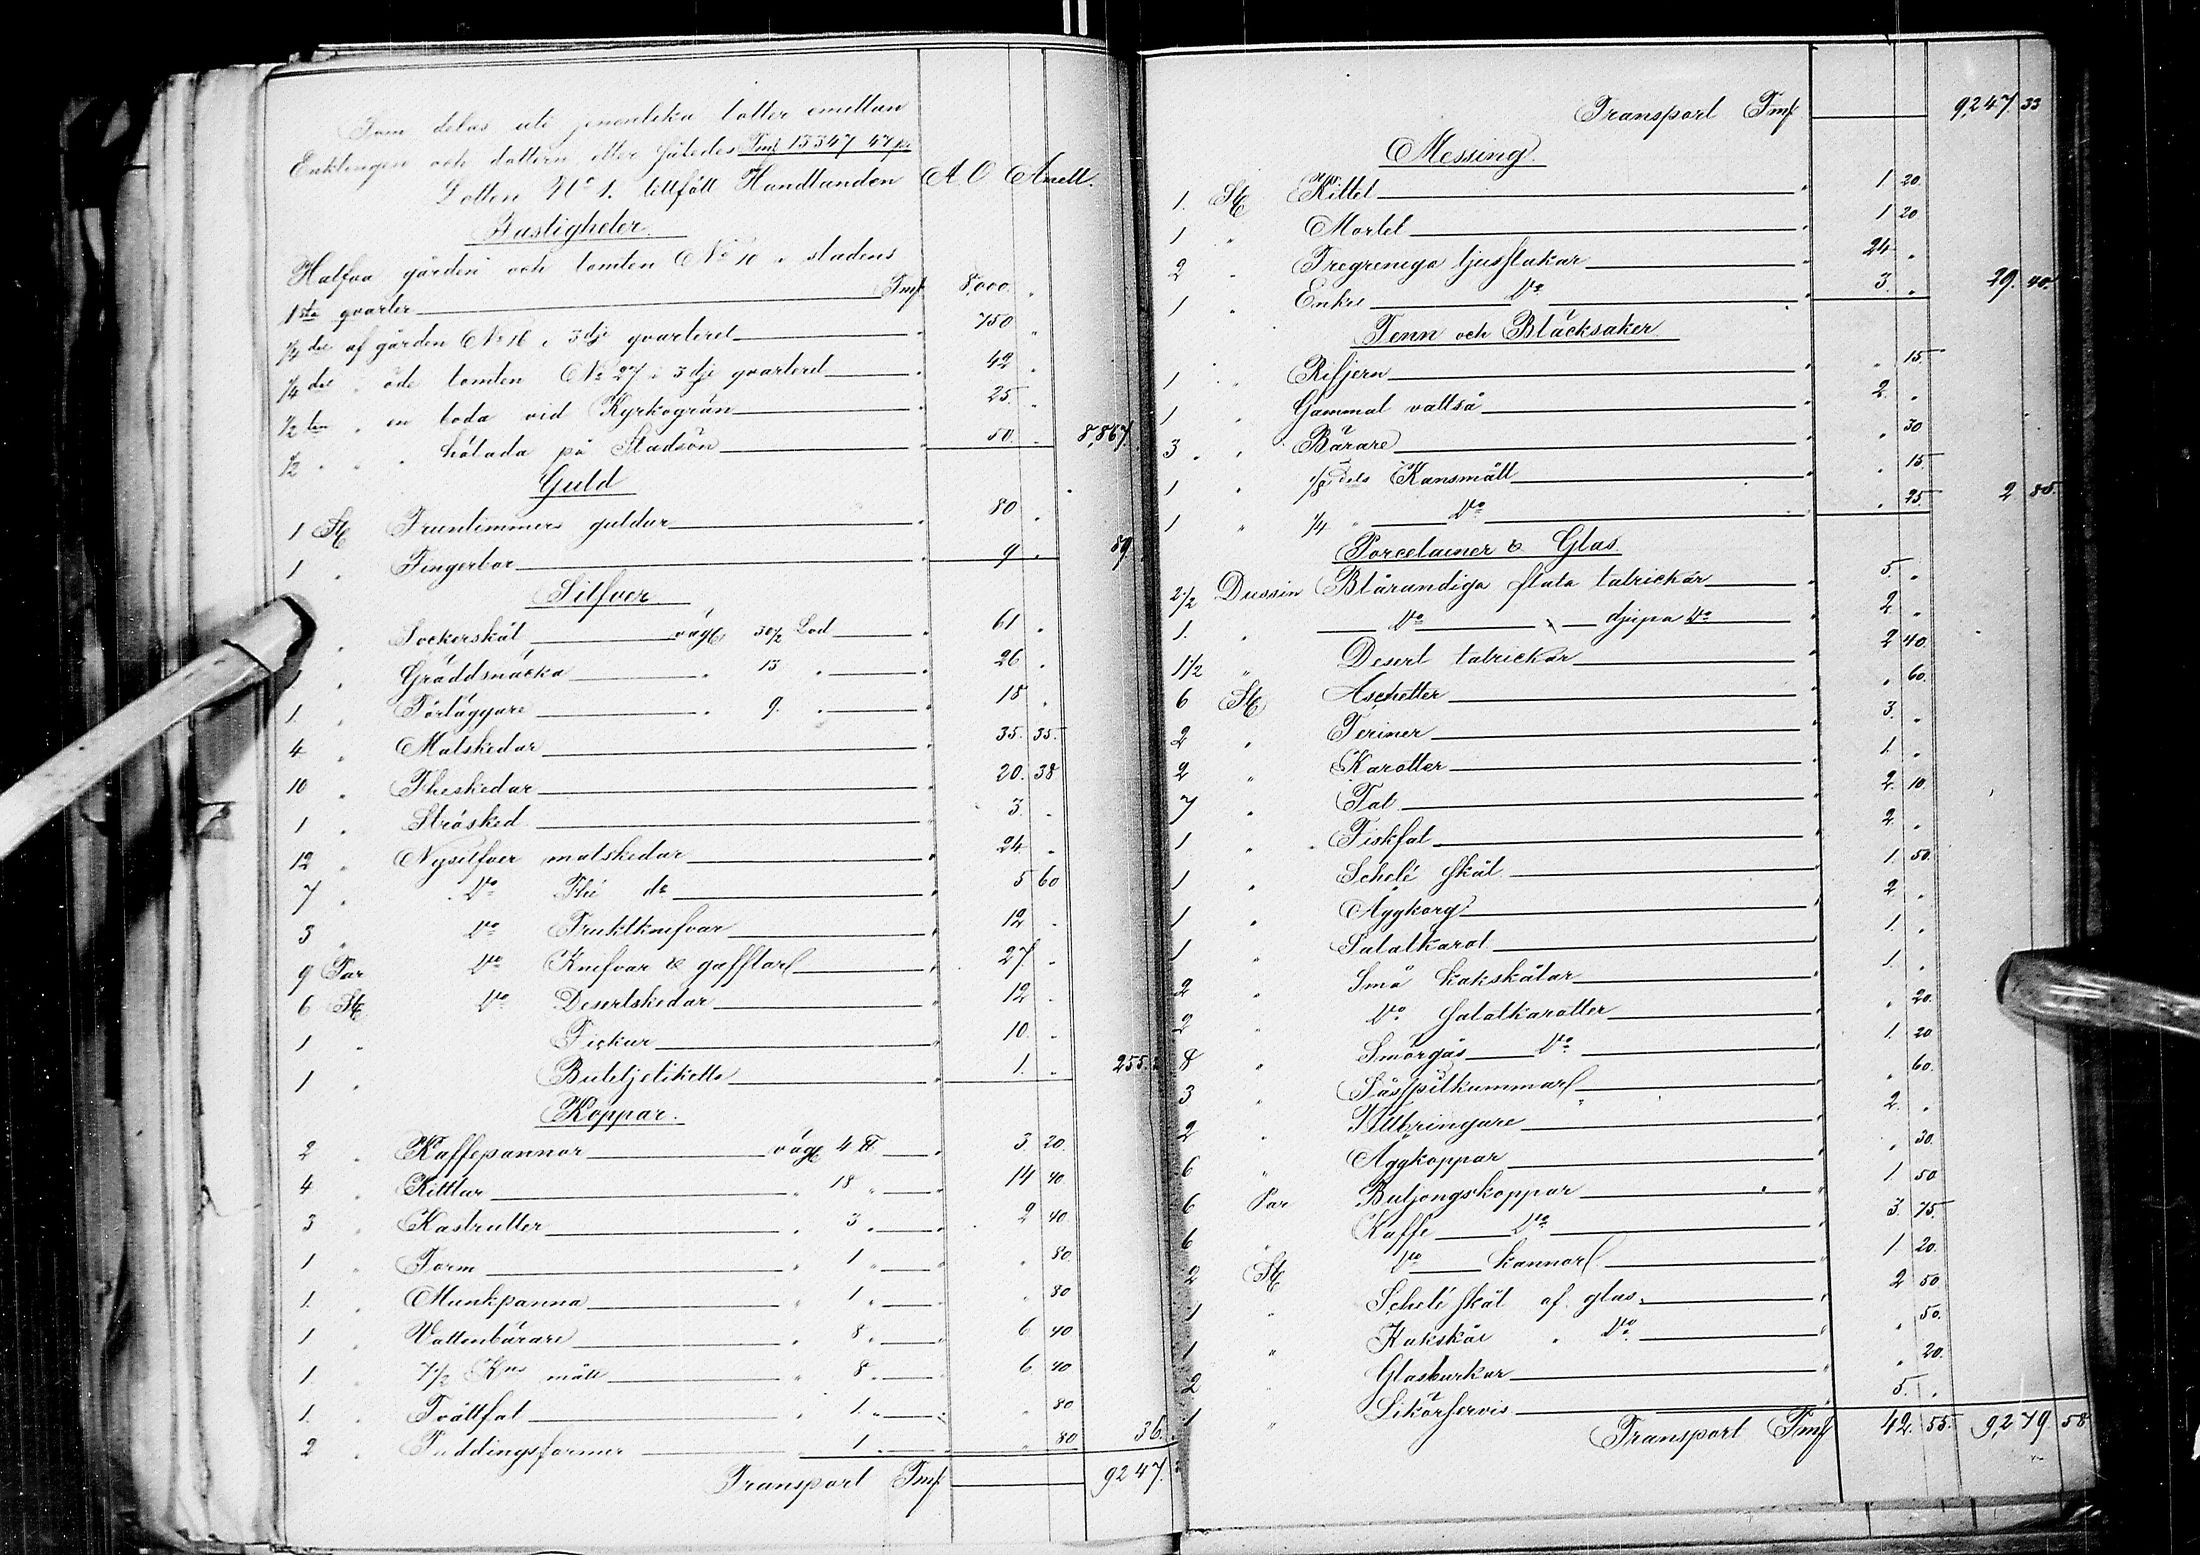 Som delas uti jemnlika lotter emellan
Enklingen och dottern efter följedes Fmk 13347 47 pi
Lotten No 1. tillfält Handlanden A. O. Amell.
Fastigheter.
Halfva gården och tomten No 10 i stadens
1sta qvarter Fmk 8,000 "
1/4 del af gården No 16 i 3dje qvarteret " 750 "
1/4 del " öde tomten No 27 i 3dje qvarteret " 42 "
1/2 ten " en boda vid Kyrkogrän " 25. "
1/2 " " " hölada på Stadsön " 50. " 8,867.
Guld
1 St Fruntimmers guldur " 80 "
1 " Fingerbor " 9 " 89.
Silfver
" Sockerskål väg. 30 1/2 Lod " 61 "
" Gräddsnäcka " 13 " " 26 "
1. " Förläggare " 9. " " 18 "
4 " Matskedar " 35. 35.
10 " Theskedar " 20. 38
1 " Strösked " 3. "
12 " Nysilfver matskedar " 24 "
7 " Do The do " 5 60
3 " Do Fruktknifvar " 12 "
9 Par Do Knifvar & gafflar " 27. "
6 St Do Desertskedar " 12 "
1 " Fickur " 10. "
1 " Buteljetikette " 1. " 255.
Koppar.
2 " Kaffepannor väg. 4 ℔ " 3. 20.
4 " Kittlar " 18 " " 14 40
3 " Kastruller " 3 " " 2 40
1 " Form " 1 " " " 80
1. " Munkpanna " 1 " " " 80
1 " Vattenbärare " 8 " " 6 40
1 " 7/2 Kns mått " 8 " " 6 40
1. " Tvättfat " 1. " " " 80
2 " Puddingsformer " 1 " " " 80 36.
Transport Fmk 9247.
Transport Fmk 9,247. 33
Messing.
1. St Kittel " 1 20.
1 " Mortel " 1 20
2 " Tregreniga ljusstakar " 24 "
1 " Enkes Do " 3. " 29. 40.
Tenn och Bläcksaker
1 " Rifjern " " 15.
1 " Gammal vattså " 2. "
3 " " Bärare " " 30
1 " 1/8 dels Kansmått " " 15.
1 " 1/4 " Do " 25. 2 85.
Porcelainer & Glas
2 1/2 Dussin Blårandiga flata talrickar " 5. "
1. " Do djupa Do " 2 "
1 1/2 " Desert talrickar " 2 40.
6 St Aschetter " " 60.
2 " Teriner " 3. "
2 " Karotter " 1. "
7 " Fat " 2. 10.
1 " Fiskfat " 2. "
1 " Schelé skål " 1. 50.
1 " Äggkorg " 2. "
1 " Salatkarot " 1. "
2 " Små kakskålar " 1. "
2 " Do Salatkarotter " " 20.
8 " Smörgås Do " 1. 20
3 " " 60.
2 " Tillbringare " 2. "
6 " Äggkoppar " " 30.
6 Par Buljongskoppar " 1 50
6 " Kaffe Do " 3. 75.
2 St Do kannor " 1 20.
1 " Schelé skål af glas " 2 50.
1 " Kakskål " Do " " 50.
2 " Glasburkar " " 20.
1 " Likörservis " 5. "
Transport Fmk 42. 55. 9,279. 58